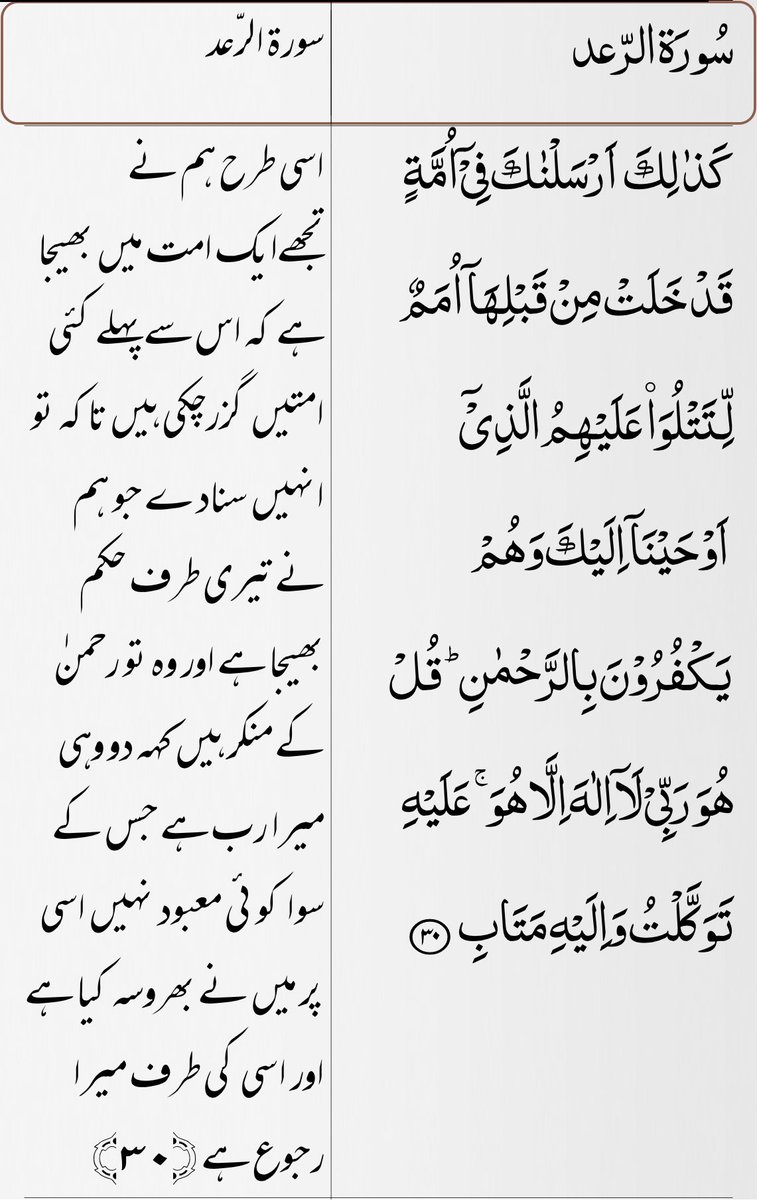 سُورَةالرّعد
كَذٰلِكَ اَرْسَلْنٰكَ فِىْۤ اُمَّةٍ
قَدْ خَلَتْ مِنْ قَبْلِهَاۤ اُمَمٌ
لِّتَتْلُوَا۟ عَلَيْهِمُ الَّذِىْۤ
اَوْحَيْنَاۤ اِلَيْكَ وَهُمْ
يَكْفُرُوْنَ بِالرَّحْمٰنِ ؕ قُلْ
هُوَ رَبِّىْ لَاۤ اِلٰهَ اِلَّا هُوَ ۚ عَلَيْهِ
تَوَكَّلْتُ وَاِلَيْهِ مَتَابِ ۳۰
سورة الرّعد
اسی طرح ہم نے
تجھے ایک امت میں بھیجا
ہے کہ اس سے پہلے کئی
امتیں گزر چکی ہیں تاکہ تو
انہیں سنا دے جو ہم
نے تیری طرف حکم
بھیجا ہے اور وہ تو رحمنٰ
کے منکر ہیں کہہ دو وہی
میرا رب ہے جس کے
سوا کوئی معبود نہیں اسی
پر میں نے بھروسہ کیا ہے
اور اسی کی طرف میرا
رجوع ہے ﴿۳۰﴾